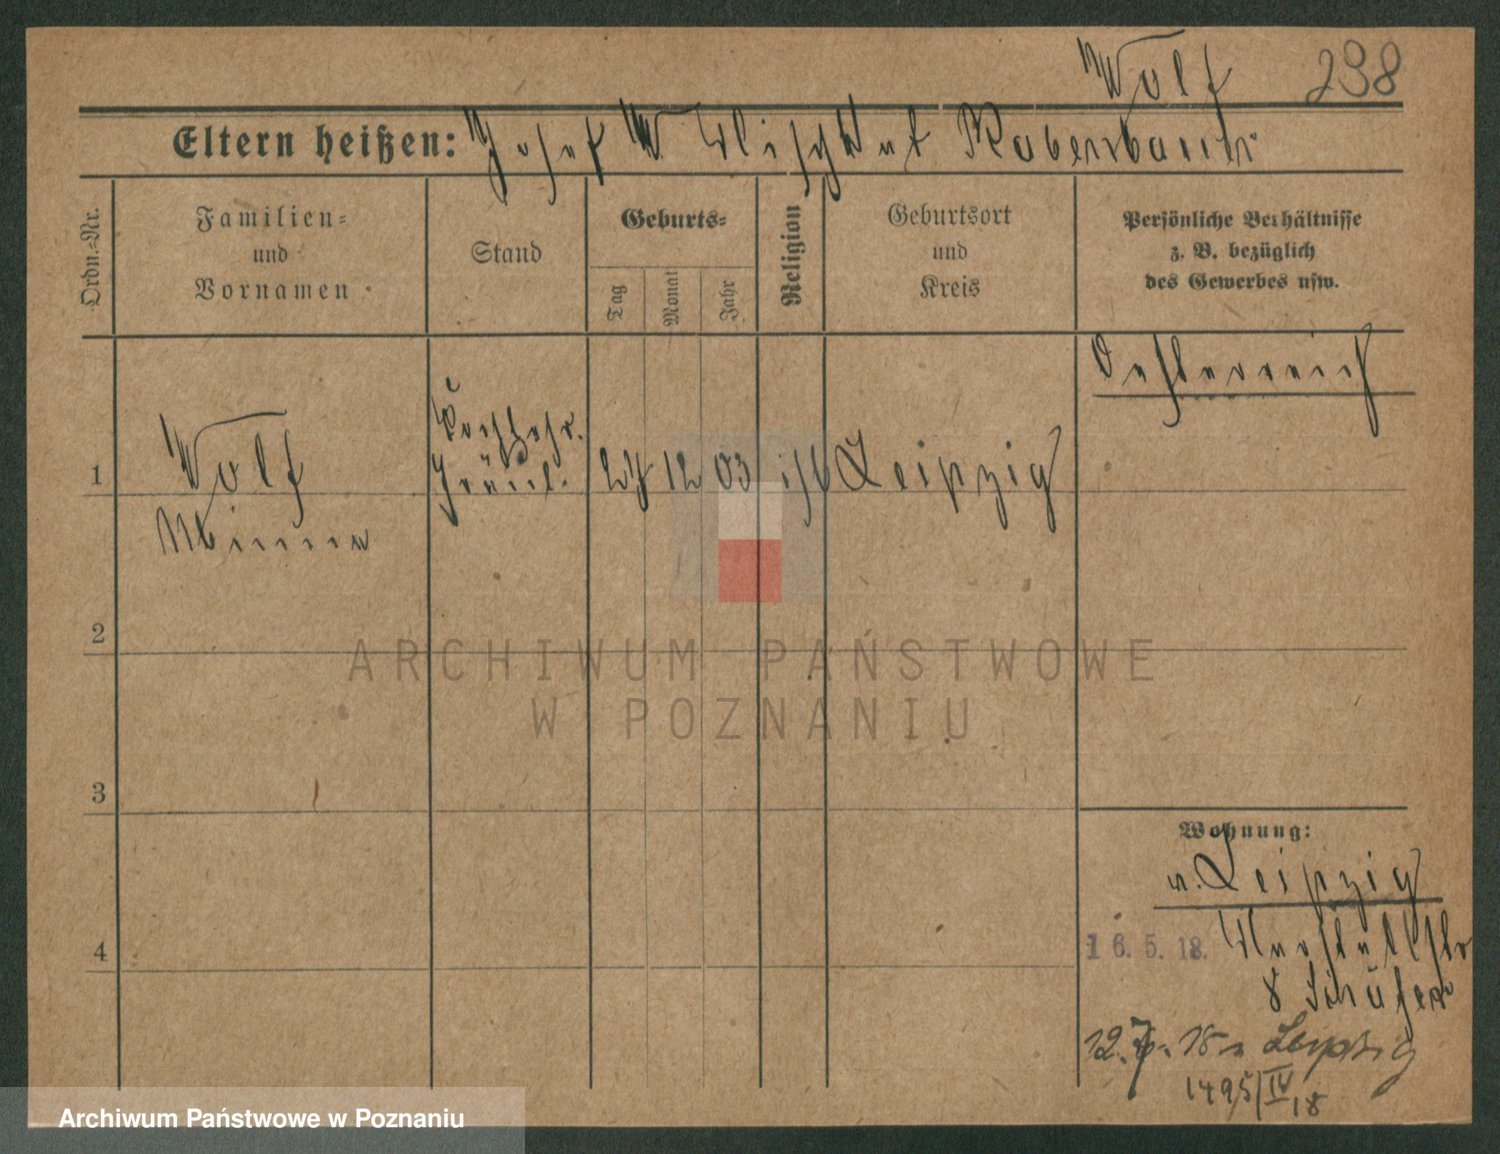 Wolf 298
Eltern heißen: Josef W. Elisabet
Ordn.-Nr.
Familien- und Vornamen
Stand
Geburts-
Tag
Monat
Jahr
Religion
Geburtsort und Kreis
Persönliche Verhältnisse z. B. bezüglich des Gewerbes usw.
Oesterreich
1
Wolf
Minna
Fräul.
12 03 Leipzig
2
ARCHIWUM PAŃSTWOWE
W POZNANIU
3
Wohnung:
n. Leipzig
4
16. 5. 18.
8 Schäfer
12. 7. 18 n Leipzig
1495/IV 18
Archiwum Państwowe w Poznaniu